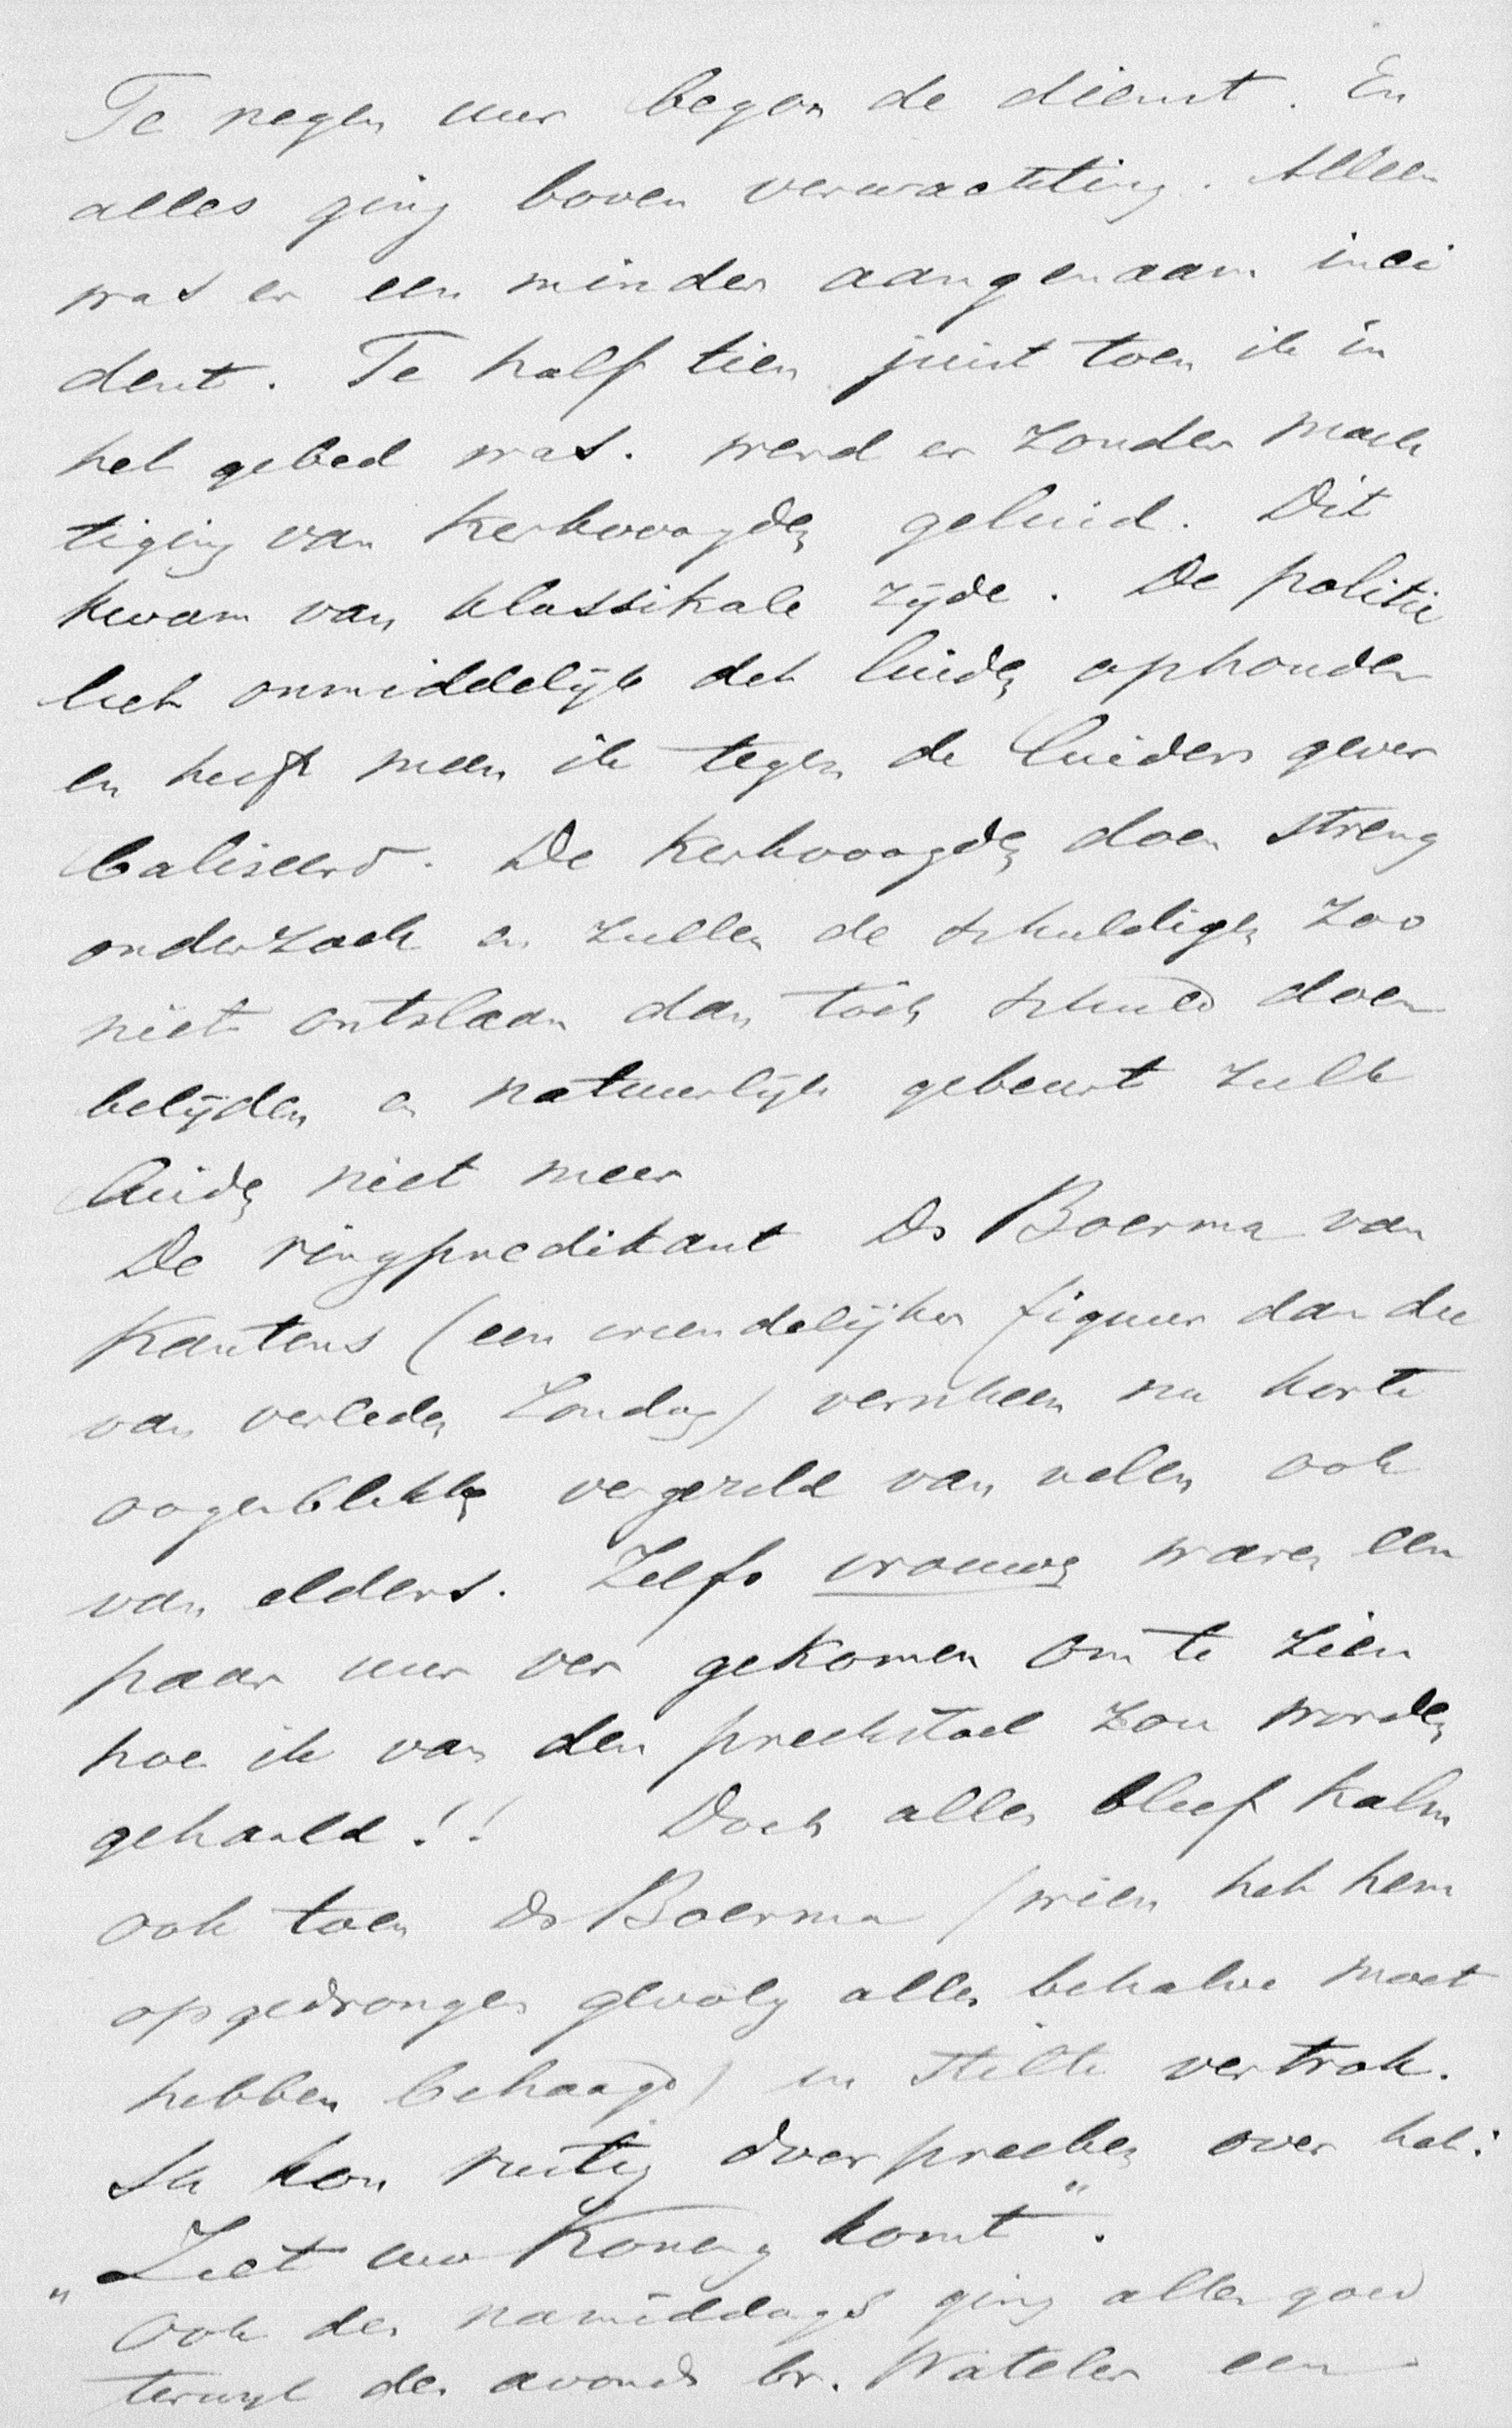 Te negen uur begon de dienst. En
alles ging boven verwachting. Alleen
was er een minder aangenaam inci
dent. Te half tien juist toen ik in
het gebed was. werd er zonder mach
tiging van Kerkvoogden geluid. Dit
kwam van klassikale zijde. De politie
liet onmiddelijk dat luiden ophouden
en heeft meen ik tegen de luiders gever
baliseerd. De Kerkvoogden doen streng
onderzoek en zullen de schuldigen zoo
niet ontslaan dan toch schuld doen
belijden en natuurlijk gebeurt zulk
luiden niet meer
De ringpredikant Ds Boerma van
Kantens (een vriendelijker figuur dan die
van verleden Zondag) verscheen na korte
oogenblikken vergezeld van velen ook
van elders. Zelfs vrouwen waren een
paar uur ver gekomen om te zien
hoe ik van den preekstoel zou worden
gehaald!! Doch alles bleef kalm
ook toen Ds Boerma (wien het hem
opgedrongen gevolg alles behalve moet
hebben behaagd) in stilte vertrok.
Ik kon rustig doorpreeken over het:
„Ziet uw Koning komt".
Ook des namiddags ging alles goed
terwijl des avonds br. Wateler een